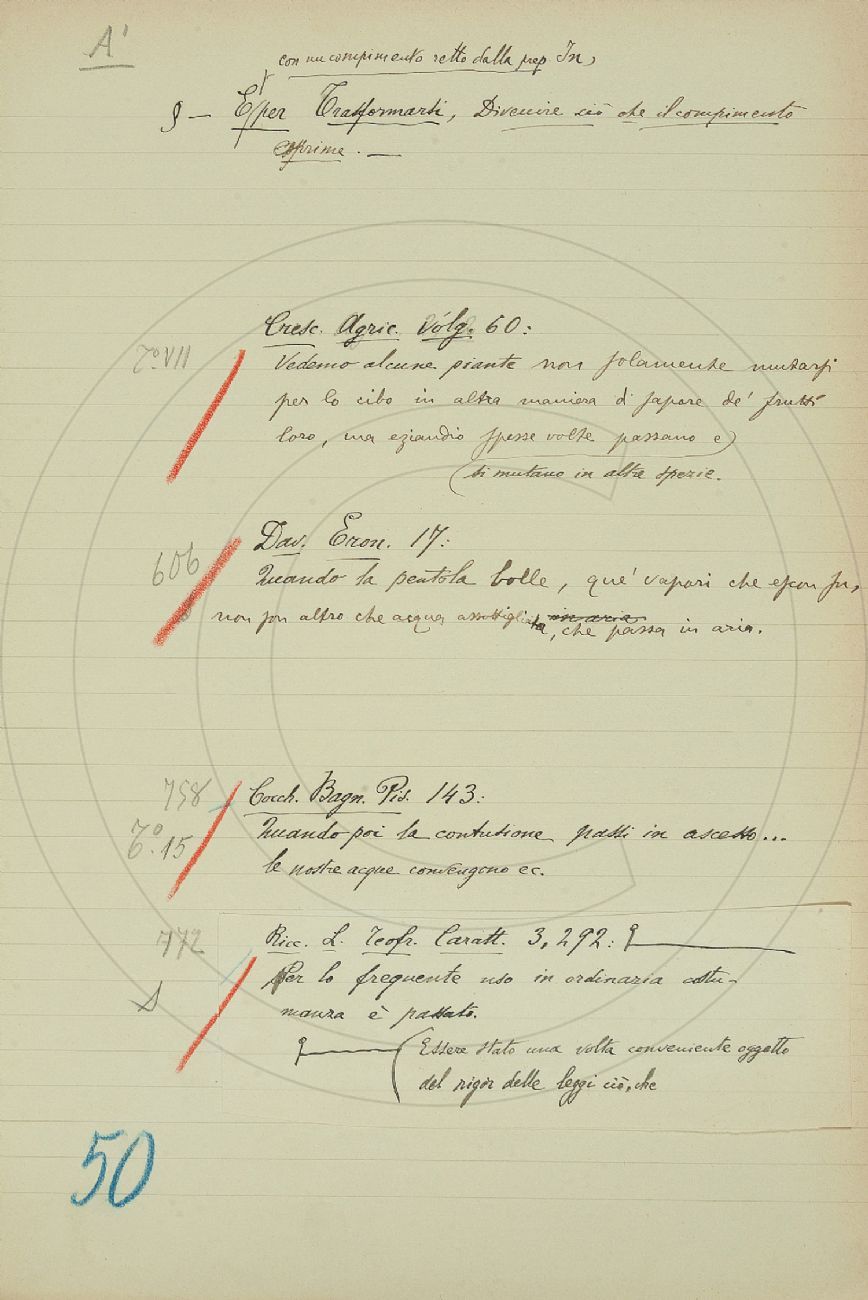 A'
con un compimento retto dalla prep In,
§ — E per Trasformarsi, Divenire ciò che il compimento
esprime. —
Cresc. Agric. Volg. 60:
2º VII
Vedemo alcune piante non solamente mutarsi
per lo cibo in altra maniera di sapore de' frutti
loro, ma eziandio spesse volte passano e
si mutano in altre spezie.
Dav. Eron. 17:
606
Quando la pentola bolle, que' vapori che escon fu,
non son altro che acqua assottigliata, in aria che passa in aria.
758
Cocch. Bagn. Pis. 143:
6º. 15
Quando poi la contusione passi in ascesso...
le nostre acque convengono ec.
772
Ricc. L. Teofr. Caratt. 3, 292:
Per lo frequente uso in ordinaria costu-
manza è passato.
Essere stato una volta conveniente oggetto
del rigor delle leggi ciò, che
50